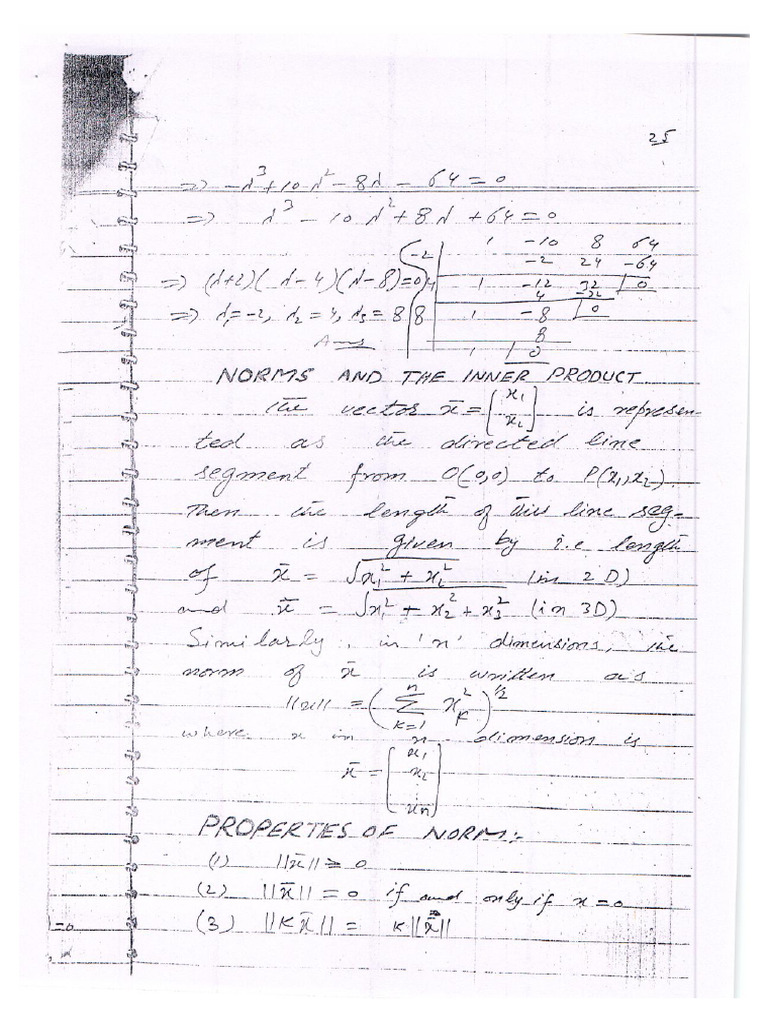 25
=> -λ³ + 10λ² - 8λ - 64 = 0
=> λ³ - 10λ² + 8λ + 64 = 0
-2 | 1 -10 8 64
-2 24 -64
=> (λ+2)(λ-4)(λ-8)=0 4 | 1 -12 32 | 0
4 -32
=> λ₁=-2, λ₂=4, λ₃=8 8 | 1 -8 | 0
8
Ans 1 | 0
NORMS AND THE INNER PRODUCT
The vector x̄ = [x₁ x₂] is represen-
ted as the directed line
segment from O(0,0) to P(x₁,x₂).
Then the length of this line seg-
ment is given by i.e length
of x̄ = √x₁² + x₂² (in 2D)
and x̄ = √x₁² + x₂² + x₃² (in 3D)
Similarly, in 'n' dimensions, the
norm of x̄ is written as
||x|| = (Σ K=1 n x²K)^1/2
where x in n dimension is
x̄ = [x₁ x₂ : xn]
PROPERTIES OF NORM:-
(1) ||x̄|| ≥ 0
(2) ||x̄|| = 0 if and only if x = 0
(3) ||K x̄|| = K||x̄||
=0